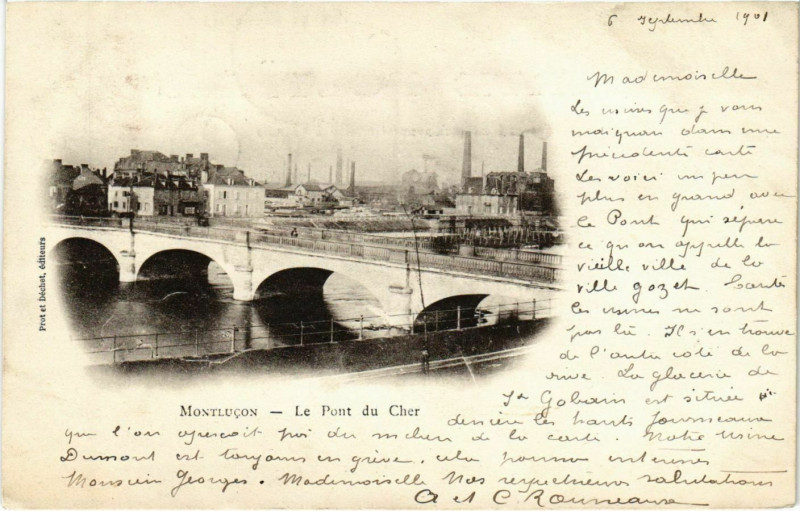 6 Septembre 1901
Mademoiselle
Les usines que je vous
indiquais dans une
précédente carte
Les voici un peu
plus en grand avec
le Pont qui sépare
ce qu'on appelle la
vieille ville de la
ville gozet. Toutes
les usines ne sont
pas là. Il s'en trouve
de l'autre côté de la
rive. La glacerie de
St Gobain est située
derrière les hauts fourneaux
que l'on aperçoit près du milieu de la carte. Notre usine
Dumont est toujours en grève, cela pourra intéresser
Monsieur Georges. Mademoiselle Nos respectueuses salutations
et C. Rousseau
Prot et Déchet, éditeurs
MONTLUÇON — Le Pont du Cher